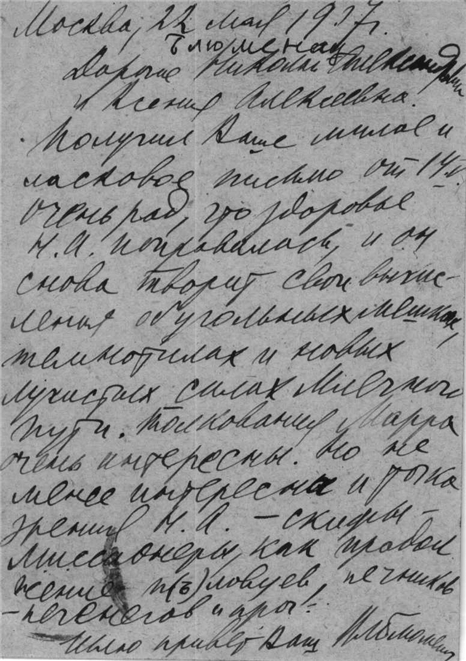 Москва, 22 мая 1937г.
Дорогие Николай Александрович
и Ксения Алексеевна.
Получил Ваше милое и
ласковое письмо от 14/V.
Очень рад, что здоровье
Н.А. поправилось, и он
снова творит свои вычис-
ления об угольных мешках,
темнотилах и новых
лучистых силах Млечного
Пути. Толкования Марра
очень интересны. Но не
менее интересна и точка
зрения Н.А. – скифы-
миссионеры, как продол
жение п(ъ)ловцев, печников
-печенегов и проч.
Шлю привет Ваш